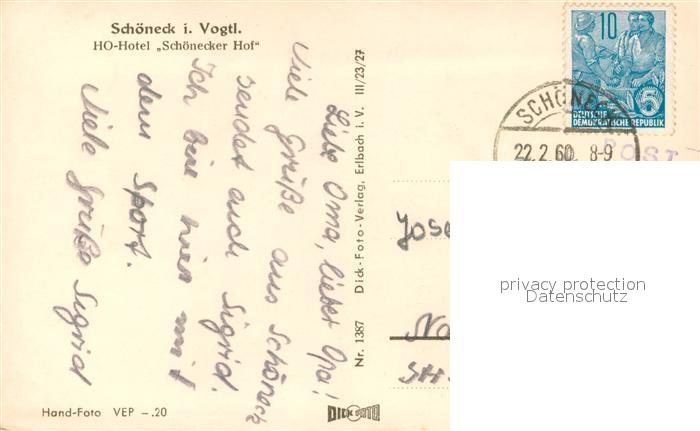 Schöneck i. Vogtl.
HO-Hotel „Schönecker Hof“
Liebe Oma, lieber Opa!
Viele Grüße aus Schöneck
sendet auch Sigrid.
Ich bin hier mit
dem Sport.
Viele Grüße Sigrid
Hand-Foto VEP –.20
Nr. 1387 Dick-Foto-Verlag, Erlbach i. V. III/23/27
DICK FOTO
10
DEUTSCHE
DEMOKRATISCHE REPUBLIK
5
SCHÖNE
22.2.60. 8-9
POST
Jose
No
privacy protection
Datenschutz